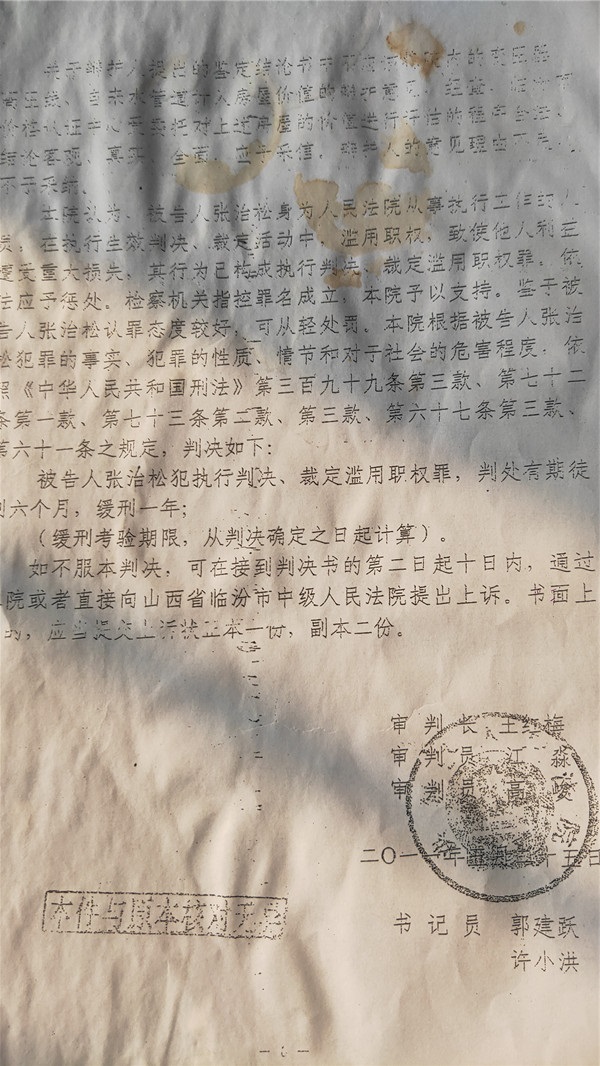 关于辩护人提出的鉴定结论书
高压线、自来水管道计入房屋价值的 意见，经查，
价格认证中心受委托对上述房屋的价值进行评估的程序合法、
结论客观、真实、全面，应予采信。辩护人的意见理由不
不予采纳。
本院认为，被告人张治松身为人民法院从事执行工作的人
员，在执行生效判决、裁定活动中，滥用职权，致使他人利益
遭受重大损失，其行为已构成执行判决、裁定滥用职权罪。依
法应予惩处。检察机关指控罪名成立，本院予以支持。鉴于被
告人张治松认罪态度较好，可从轻处罚。本院根据被告人张治
松犯罪的事实、犯罪的性质、情节和对于社会的危害程度，依
照《中华人民共和国刑法》第三百九十九条第三款、第七十二
条第一款、第七十三条第二款、第三款、第六十七条第三款、
第六十一条之规定，判决如下：
被告人张治松犯执行判决、裁定滥用职权罪，判处有期徒
刑六个月，缓刑一年；
（缓刑考验期限，从判决确定之日起计算）。
如不服本判决，可在接到判决书的第二日起十日内，通过
院或者直接向山西省临汾市中级人民法院提出上诉。书面上
的，应当提交上诉状正本一份，副本二份。
审判长 王红梅
审判员 江淼
审判员 高
二〇一一年 月 十五日
本件与原本核对无异
书记员 郭建跃
许小洪